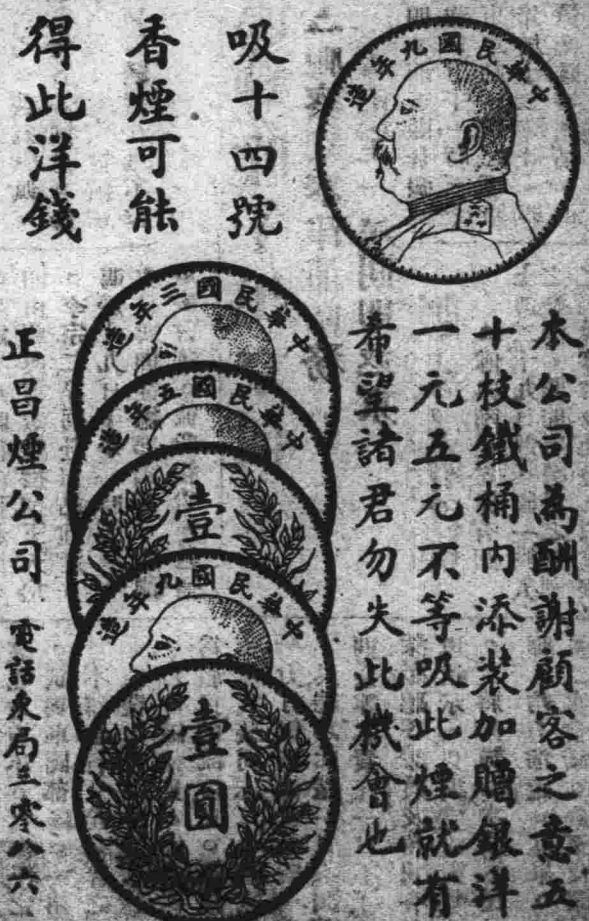 中華民國九年造
吸十四號
香煙可能
得此洋錢
本公司為酬謝顧客之意五
十枝鐵桶內添裝加贈銀洋
一元五元不等吸此煙就有
希望諸君勿失此機會也
中華民國三年造
中華民國五年造
壹
中華民國九年造
壹圓
正昌煙公司
電話東局三零八六